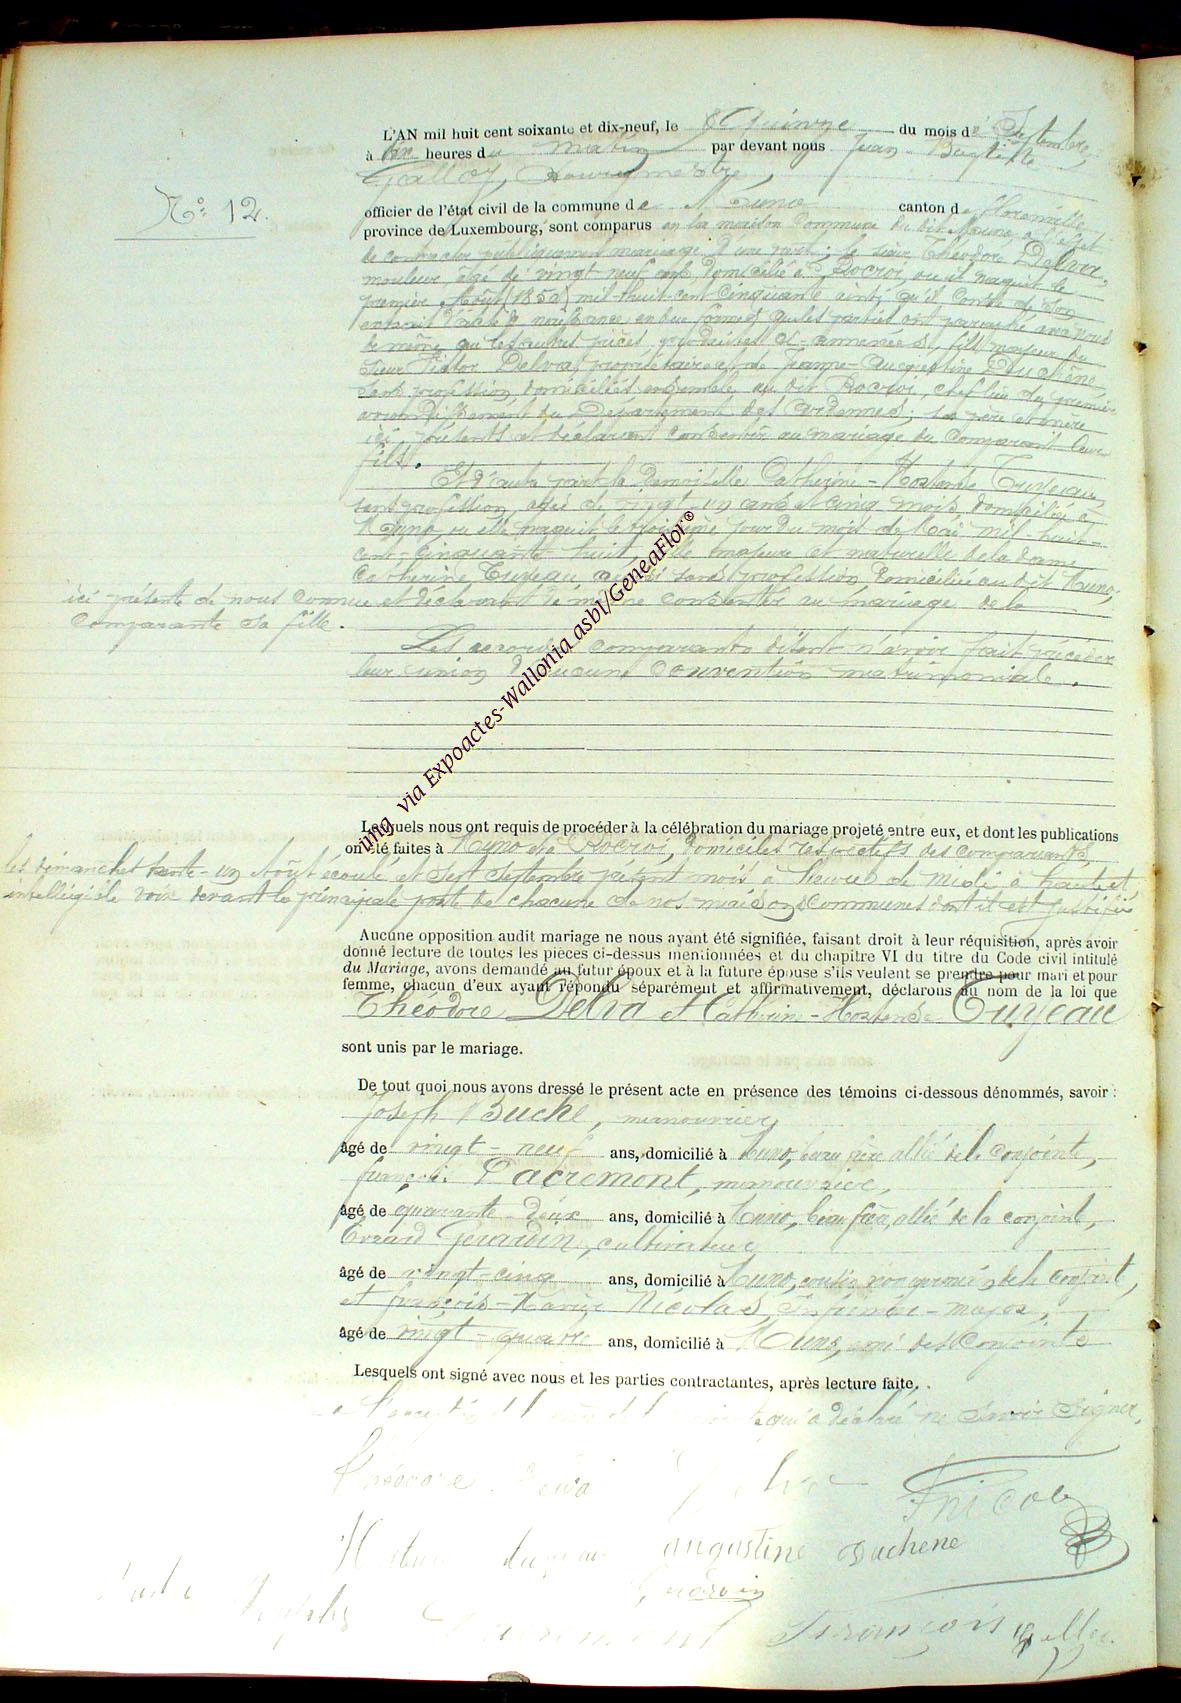 N° 12.
L'AN mil huit cent soixante et dix-neuf, le Quinze du mois de Septembre
à dix heures du matin par devant nous Jean-Baptiste
Galloy, Bourgmestre,
officier de l'état civil de la commune de Muno canton de Florenville
province de Luxembourg, sont comparus en la maison commune du dit Muno, à l'effet
de contracter publiquement mariage d'une part; le sieur Théodore Delva,
mouleur, âgé de vingt neuf ans, domicilié à Rocroi, où il naquit le
premier Août (1850) mil-huit-cent cinquante ainsi qu'il conste de son
extrait d'acte de naissance en due forme que les parties ont
de même que les autres pièces produites et annexées, fils majeur du
sieur Victor Delva, propriétaire et de Jeanne-Augustine Duchêne
sans profession, domiciliés ensemble au dit Rocroi, chef lieu du premier
arrondissement du Département des Ardennes; les père et mère
ici présents et déclarant consentir au mariage du comparant leur
fils.
Et d'autre part la Demoiselle Catherine-Hortense Tuyeau
sans profession, âgée de vingt-un ans et cinq mois, domiciliée à
Muno où elle naquit le jour du mois de Mai mil-huit-
cent-cinquante-huit, fille majeure et naturelle de la dame
Catherine Tuyeau, aussi sans profession, domiciliée au dit Muno;
ici présente de nous connue et déclarant de même consentir au mariage de la
comparante sa fille.
Les seconds comparants disent n'avoir fait précéder
leur union d'aucune convention matrimoniale.
img via Expoactes-Wallonia asbl/GeneaFlor®
Lesquels nous ont requis de procéder à la célébration du mariage projeté entre eux, et dont les publications
ont été faites à Muno et à Rocroi, domiciles respectifs des comparants,
les dimanches trente-un Août écoulé et sept Septembre présent mois à l'heure de midi, à haute et
intelligible voix devant la principale porte de chacune de nos maisons communes dont il est justifié
Aucune opposition audit mariage ne nous ayant été signifiée, faisant droit à leur réquisition, après avoir
donné lecture de toutes les pièces ci-dessus mentionnées et du chapitre VI du titre du Code civil intitulé
du Mariage, avons demandé au futur époux et à la future épouse s'ils veulent se prendre pour mari et pour
femme, chacun d'eux ayant répondu séparément et affirmativement, déclarons au nom de la loi que
Théodore Delva et Catherine-Hortense Tuyeau
sont unis par le mariage.
De tout quoi nous avons dressé le présent acte en présence des témoins ci-dessous dénommés, savoir :
Joseph Buche, manouvrier,
âgé de vingt-neuf ans, domicilié à Muno, beau frère allié de la conjointe,
françois Pacremont, manouvrier,
âgé de quarante-deux ans, domicilié à Muno, beau frère, allié de la conjointe,
Evrard Gérardin, cultivateur
âgé de vingt-cinq ans, domicilié à Muno, cousin non parent de la conjointe,
et françois-Xavier Nicolas, Infirmier-major,
âgé de vingt-quatre ans, domicilié à Muno, ami des conjoints
Lesquels ont signé avec nous et les parties contractantes, après lecture faite.
à l'exception de la mère de la conjointe qui a déclaré ne savoir signer.
Théodore Delva Delva F Nicolas
Hortense tuyeau augustine Duchene
Gérardin
Buche Joseph Pacremont François Galloy